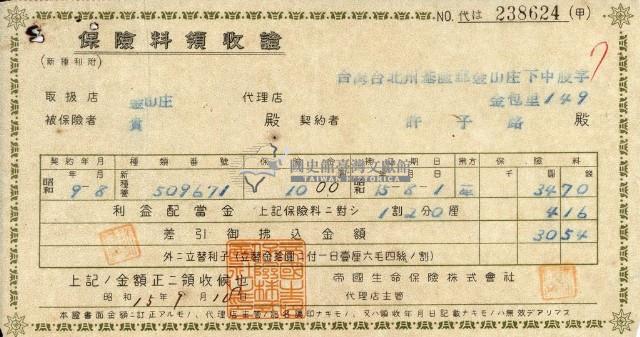 NO. 代は 238624 (甲)
保險料領收證
(新種利附)
台灣台北州基隆郡萬山庄下中股字
金包里149
取扱店 金山庄 代理店
被保險者 貴 殿 契約者 許子路 殿
契約年月 種類番號 保 期日 拂方 保險料
昭和 年 月 新種養 千 圓 錢
9-8 509671 1000 昭和 15-8-1 年 34 70
國史館臺灣文獻館
TAIWAN HISTORICA
利益配當金 上記保險料ニ對シ 1割20厘 4 16
差引御拂込金額 30 54
外ニ立替利子(立替金拾圓ニ付一日壹厘六毛四絲ノ割)
上記ノ金額正ニ領收候也 帝國生命保險株式會社
昭和15年9月10日 代理店主管
本證書面金額ニ訂正アルモノ、代理店主管ノ記名調印ナキモノ、又ハ領收年月日記載ナキモノハ無效デアリマス